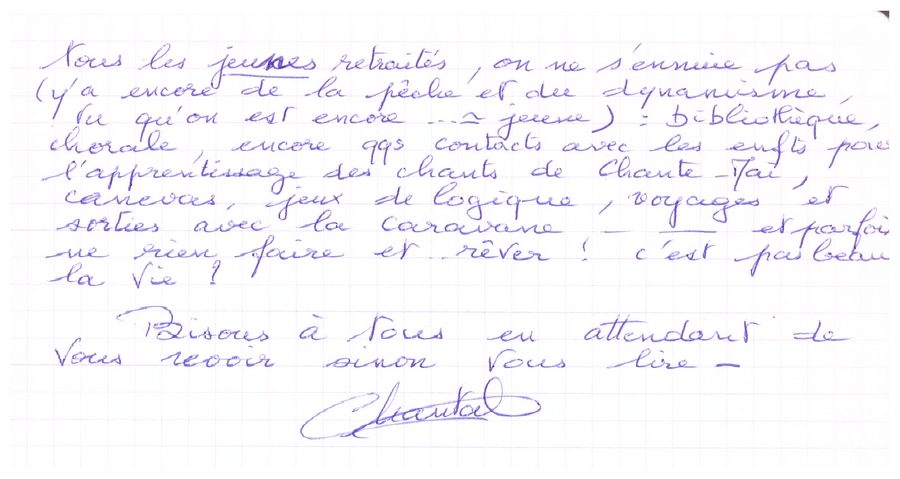 Nous les jeunes retraités, on ne s'ennuie pas
(y'a encore de la pêche et du dynamisme,
vu qu'on est encore ... ≃ jeune) : bibliothèque,
chorale, encore qqs contacts avec les enfts pour
l'apprentissage des chants de Chante-Mai,
canevas, jeux de logique, voyages et
sorties avec la caravane - — et parfois
ne rien faire et .. rêver ! c'est pas beau
la vie ?
Bisous à tous en attendant de
vous revoir sinon vous lire -
Chantal